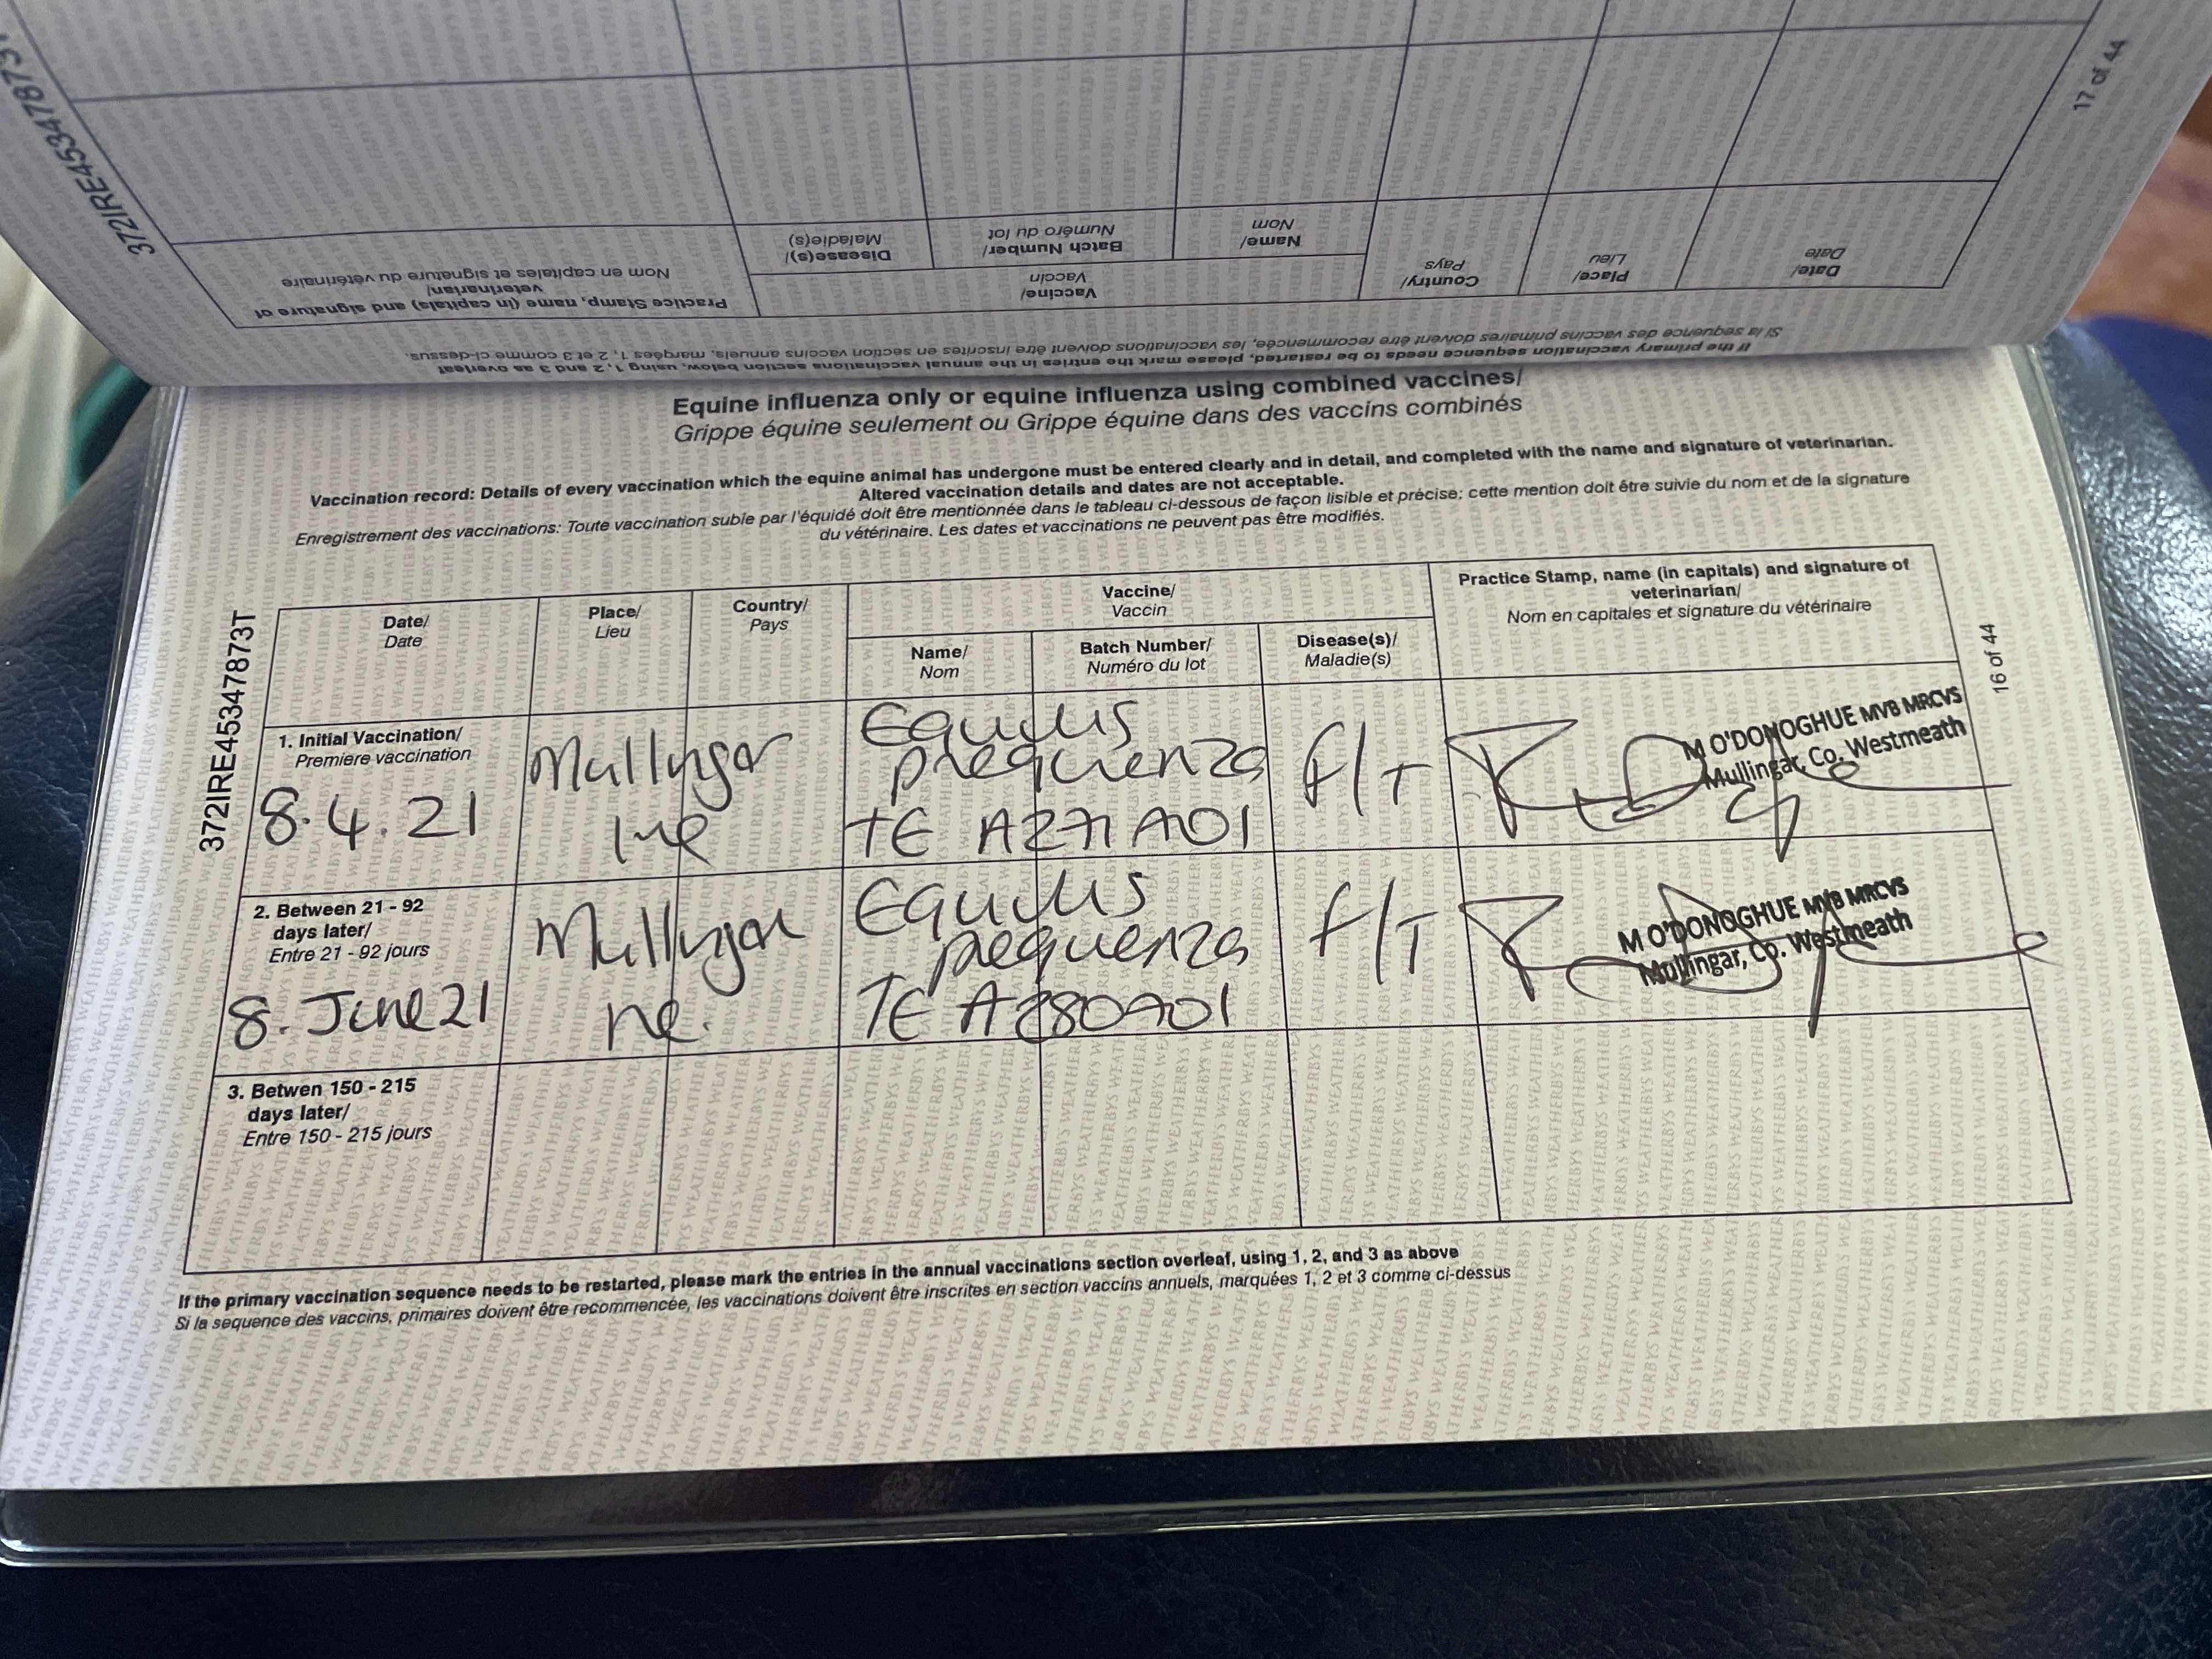 372IRE45347873T
17 of 44
Practice Stamp, name (in capitals) and signature of
veterinarian/
Nom en capitales et signature du vétérinaire
Vaccine/
Vaccin
Disease(s)/
Maladie(s)
Batch Number/
Numéro du lot
Name/
Nom
Country/
Pays
Place/
Lieu
Date/
Date
If the primary vaccination sequence needs to be restarted, please mark the entries in the annual vaccinations section below, using 1, 2 and 3 as overleaf
Si la sequence des vaccins primaires doivent être recommencée, les vaccinations doivent être inscrites en section vaccins annuels, marqées 1, 2 et 3 comme ci-dessus.
Equine influenza only or equine influenza using combined vaccines/
Grippe équine seulement ou Grippe équine dans des vaccins combinés
Vaccination record: Details of every vaccination which the equine animal has undergone must be entered clearly and in detail, and completed with the name and signature of veterinarian.
Altered vaccination details and dates are not acceptable.
Enregistrement des vaccinations: Toute vaccination subie par l'équidé doit être mentionnée dans le tableau ci-dessous de façon lisible et précise; cette mention doit être suivie du nom et de la signature
du vétérinaire. Les dates et vaccinations ne peuvent pas être modifiés.
372IRE45347873T
16 of 44
Date/
Date
Place/
Lieu
Country/
Pays
Vaccine/
Vaccin
Name/
Nom
Batch Number/
Numéro du lot
Disease(s)/
Maladie(s)
Practice Stamp, name (in capitals) and signature of
veterinarian/
Nom en capitales et signature du vétérinaire
1. Initial Vaccination/
Premiere vaccination
8.4.21
Mullingar
Ire
Equilis
prequenza
TE A271A01
F/T
M O'DONOGHUE MVB MRCVS
Mullingar, Co. Westmeath
2. Between 21 - 92
days later/
Entre 21 - 92 jours
8. June 21
Mullingar
Equilis
prequenza
TE A280A01
F/T
M O'DONOGHUE MVB MRCVS
Mullingar, Co. Westmeath
3. Betwen 150 - 215
days later/
Entre 150 - 215 jours
If the primary vaccination sequence needs to be restarted, please mark the entries in the annual vaccinations section overleaf, using 1, 2, and 3 as above
Si la sequence des vaccins, primaires doivent être recommencée, les vaccinations doivent être inscrites en section vaccins annuels, marquées 1, 2 et 3 comme ci-dessus